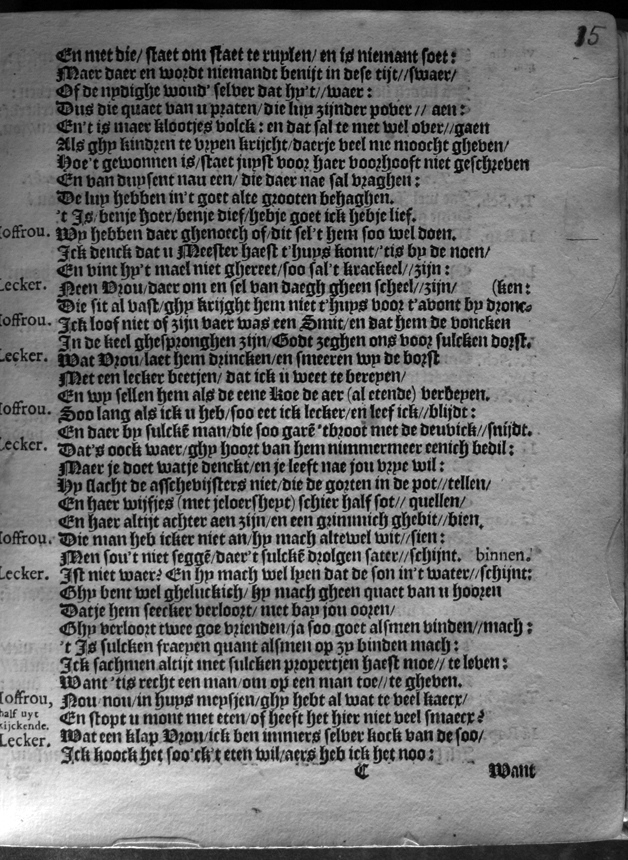 15
En met die/ staet om staet te ruylen/ en is niemant soet:
Maer daer en wordt niemandt benijt in dese tijt//swaer/
Of de nydighe woud' selver dat hy't//waer:
Dus die quaet van u praten/die luy zijnder pover// aen:
En't is maer klootjes volck: en dat sal te met wel over//gaen
Als ghy kindren te vryen krijcht/daerje veel me moocht gheven/
Hoe't gewonnen is/staet juyst voor haer voorhooft niet geschreven
En van duysent nau een/ die daer nae sal vraghen:
De luy hebben in't goet alte grooten behaghen.
't Is/benje hoer/benje dief/hebje goet ick hebje lief.
Ioffrou. Wy hebben daer ghenoech of/dit sel't hem soo wel doen.
Ick denck dat u Meester haest t'huys komt/'tis by de noen/
En vint hy't mael niet ghereet/soo sal't krackeel//zijn:
Lecker. Neen Vrou/daer om en sel van daegh gheen scheel//zijn/ (ken:
Die sit al vast/ghy krijght hem niet t'huys voor t'avont by dronc-
Ioffrou. Ick loof niet of zijn vaer was een Smit/en dat hem de voncken
In de keel ghespronghen zijn/Godt zeghen ons voor sulcken dorst.
Lecker. Wat Vrou/laet hem drincken/en smeeren wy de borst
Met een lecker beetjen/ dat ick u weet te bereyen/
En wy sellen hem als de eene Koe de aer (al etende) verbeyen.
Ioffrou. Soo lang als ick u heb/soo eet ick lecker/en leef ick//blijdt:
En daer by sulckē man/die soo garē 'tbroot met de deuvick//snijdt.
Lecker. Dat's oock waer/ghy hoort van hem nimmermeer eenich bedil:
Maer je doet watje denckt/en je leeft nae jou vrye wil:
Hy slacht de asschevijsters niet/die de gorten in de pot//tellen/
En haer wijfjes (met jeloersheyt) schier half sot// quellen/
En haer altijt achter aen zijn/en een grimmich ghebit//bien.
Ioffrou. Die man heb icker niet an/hy mach altewel wit//sien:
Men sou't niet seggē/daer't sulckē drolgen sater//schijnt. binnen.
Lecker. Ist niet waer? En hy mach wel lyen dat de son in't water//schijnt:
Ghy bent wel gheluckich/ hy mach gheen quaet van u hooren
Datje hem seecker verloort/ met bay jou ooren/
Ghy verloort twee goe vrienden/ja soo goet alsmen vinden//mach:
't Is sulcken fraeyen quant alsmen op zy binden mach:
Ick sachmen altijt met sulcken propertjen haest moe// te leven:
Want 'tis recht een man/om op een man toe// te gheven.
Ioffrou, half uyt kijckende. Nou nou/in huys meysjen/ghy hebt al wat te veel kaecx/
En stopt u mont met eten/of heeft het hier niet veel smaecx?
Lecker. Wat een klap Vrou/ick ben immers selver kock van de soo/
Ick koock het soo'ck't eten wil/aers heb ick het noo:
C Want